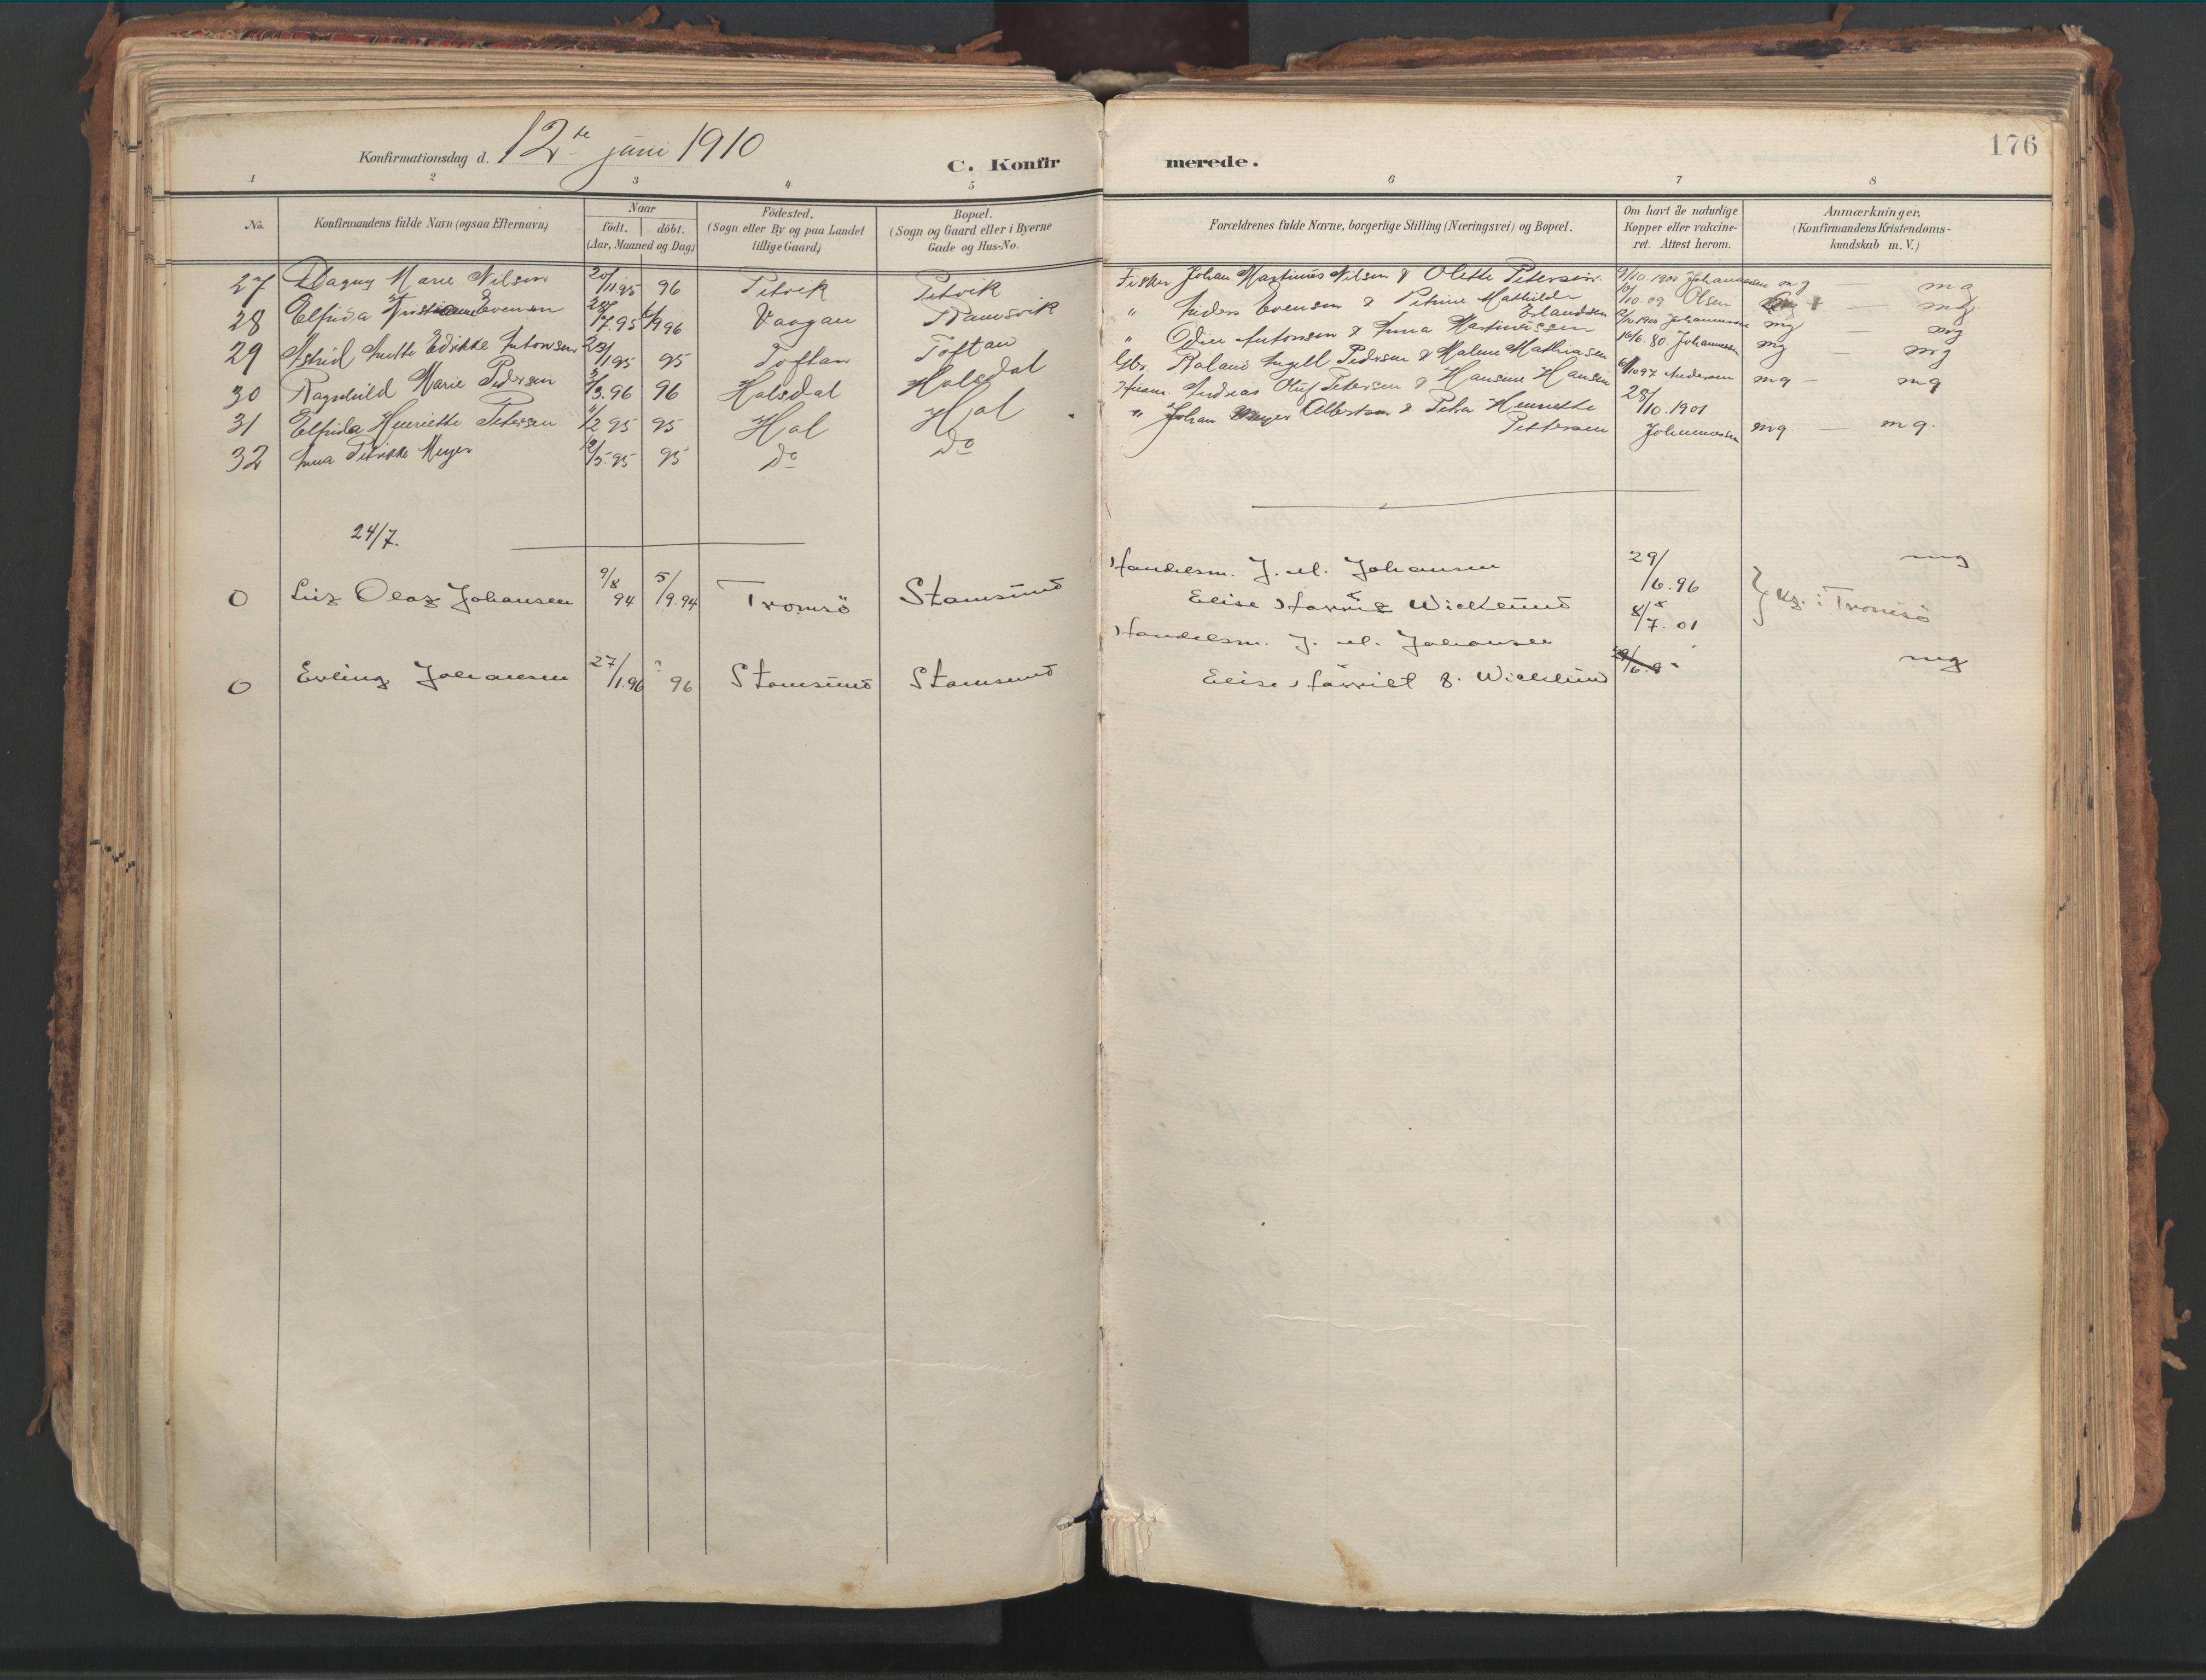 176
Konfirmationsdag d. 12te juni 1910
C. Konfirmerede.
1 2 3 4 5 6 7 8
No. Konfirmandens fulde Navn (ogsaa Efternavn) Naar födt. döbt. (Aar, Maaned og Dag) Födested. (Sogn eller By og paa Landet tillige Gaard) Bopæl. (Sogn og Gaard eller i Byerne Gade og Hus-No. Forældrenes fulde Navne, borgerlige Stilling (Næringsvei) og Bopæl. Om havt de naturlige Kopper eller vakcineret. Attest herom. Anmærkninger. (Konfirmandens Kristendomskundskab m. V.)
27 Dagny Marie Nilsen 20/11 95 96 Petvik Petvik Fisker Johan Martinus Nilsen & Olette Petersen 9/10.1900 Johannessen mg — mg
28 Elfrida Kristiane Evensen 7.95 96 Vaagan Ramsvik " Anders Evensen & Petrine Mathilde Erlandsen /10.09 Olsen mg — mg
29 Astrid Anette Edrikke Antonsen 1 95 95 Toftan Toftan " Odin Antonsen & Anna Martinussen /10 1900 Johannessen mg — mg
30 Ragnhild Marie Pedersen 3/3.96 96 Holsdal Holsdal Gbr. Roland Angell Pedersen & Malene Mathiasen 16/6.80. Johannessen mg — mg
31 Elfrida Henriette Petersen 11/2 95 95 Hol Hol Husm. Andreas Oluf Petersen & Hansine Hansen 6/10 97 Andersen mg — mg
32 Anna Petrikke Meyer /5.95 95 Do Do " Johan Meyer Albertsen & Petra Henriette Pettersen 28/10.1901 Johannessen mg. — mg.
24/7.
0 Leiz Olaf Johansen 9/8 94 5/9.94 Tromsö Stamsund Handelsm. J. M. Johansen Elise Harriet Wicklund 29/6.96 mg
} kf. i Tromsö
0 Erling Johansen 27/1.96 ? 96 Stamsund Stamsund Handelsm. J. M. Johansen Elise Harriet f. Wicklund 8/7.01 mg